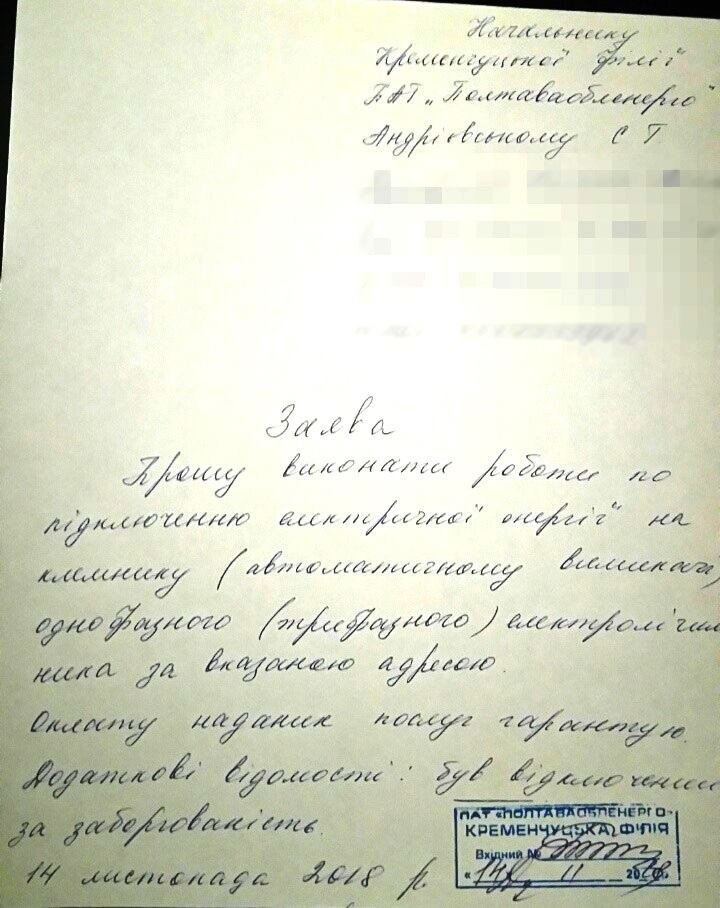 Начальнику
Кременчуцької філії
ПАТ „Полтаваобленерго"
Андрієвському С Т
Заява
Прошу виконати роботи по
підключенню електричної енергії на
клемнику (автоматичному вимикачі)
однофазного (трифазного) електролічил
ника за вказаною адресою.
Оплату наданих послуг гарантую.
Додаткові відомості: був відключений
за заборгованість.
14 листопада 2018 р.
ПАТ «ПОЛТАВАОБЛЕНЕРГО»
КРЕМЕНЧУЦЬКА ФІЛІЯ
Вхідний №
«14» 11 2018